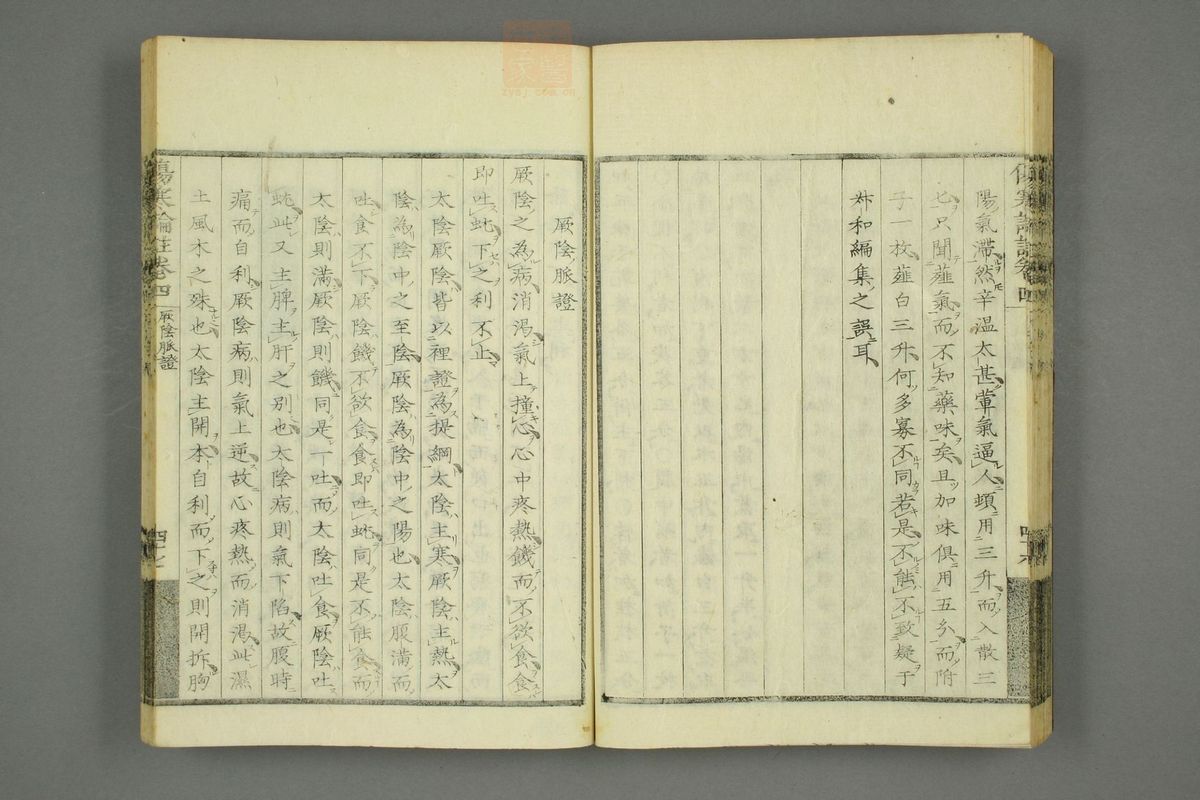 陽氣滯然辛温太甚葷氣逼人頓用三升而入散三
七只聞薤氣而不知藥味矣且加味俱用五分而附
子一枚薤白三升何多寡不同若是不能不致疑于
叔和編集之誤耳
厥陰脈證
厥陰之為病消渴氣上撞心心中疼熱饑而不欲食食
即吐蚘下之利不止
太陰厥陰皆以裡證為提綱太陰主寒厥陰主熱太
陰為陰中之至陰厥陰為陰中之陽也太陰腹滿而
吐食不下厥陰饑不欲食食即吐蚘同是不能食而
太陰則滿厥陰則饑同是一吐而太陰吐食厥陰吐
蚘此又主脾主肝之別也太陰病則氣下陷故腹時
痛而自利厥陰病則氣上逆故心疼熱而消渴此濕
土風木之殊也太陰主開本自利而下之則開折胸
傷寒論註卷四
厥陰脈證